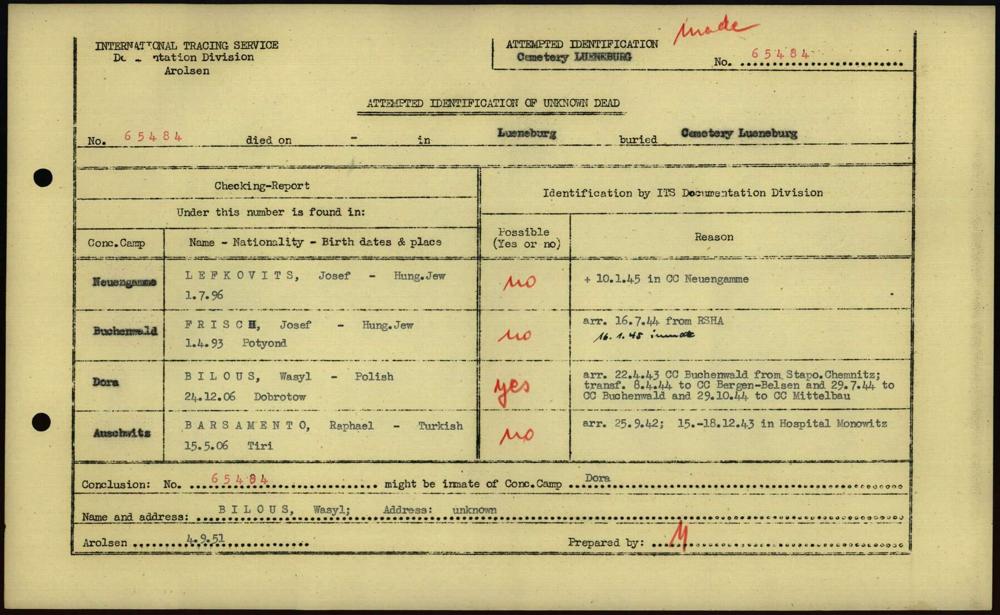 made
INTERNATIONAL TRACING SERVICE
Documentation Division
Arolsen
ATTEMPTED IDENTIFICATION
Cemetery LUENEBURG
No. 65484
ATTEMPTED IDENTIFICATION OF UNKNOWN DEAD
No. 65484 died on - in Lueneburg buried Cemetery Lueneburg
Checking-Report
Under this number is found in:
Identification by ITS Documentation Division
Conc.Camp
Name - Nationality - Birth dates & place
Possible
(Yes or no)
Reason
Neuengamme
LEFKOVITS, Josef - Hung.Jew
1.7.96
no
+ 10.1.45 in CC Neuengamme
Buchenwald
FRISCH, Josef - Hung.Jew
1.4.93 Potyond
no
arr. 16.7.44 from RSHA
16.1.45 inmate
Dora
BILOUS, Wasyl - Polish
24.12.06 Dobrotow
yes
arr. 22.4.43 CC Buchenwald from Stapo.Chemnitz;
transf. 8.4.44 to CC Bergen-Belsen and 29.7.44 to
CC Buchenwald and 29.10.44 to CC Mittelbau
Auschwitz
BARSAMENTO, Raphael - Turkish
15.5.06 Tiri
no
arr. 25.9.42; 15.-18.12.43 in Hospital Monowitz
Conclusion: No. 65484 might be inmate of Conc.Camp Dora
Name and address: BILOUS, Wasyl; Address: unknown
Arolsen 4.9.51
Prepared by: